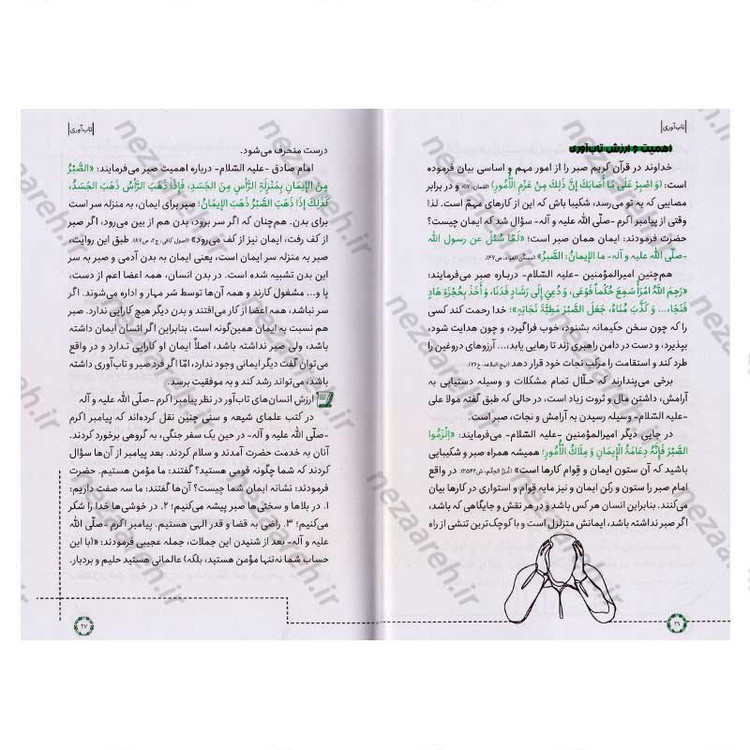 تاب‌آوری
اهمیت و ارزش تاب‌آوری
خداوند در قرآن کریم صبر را از امور مهم و اساسی بیان فرموده
است: «وَ اصْبِرْ عَلَىٰ مَا أَصَابَكَ إِنَّ ذَٰلِكَ مِنْ عَزْمِ الْأُمُورِ» (لقمان، ۱۷)؛ و در برابر
مصایبی که به تو می‌رسد، شکیبا باش که این از کارهای مهم است. لذا
وقتی از پیامبر اکرم -صلّی الله علیه و آله- سؤال شد که ایمان چیست؟
حضرت فرمودند: ایمان همان صبر است؛ «لَمّا سُئل عن رسول الله
-صلی الله علیه و آله- ما الإیمانُ: الصَّبرُ»
هم‌چنین امیرالمؤمنین -علیه السّلام- درباره صبر می‌فرمایند:
«رَحِمَ اللهُ امْرَأً سَمِعَ حُكْماً فَوَعَى، وَ دُعِيَ إِلَى رَشَادٍ فَدَنَا، وَ أَخَذَ بِحُجْزَةِ هَادٍ
فَنَجَا،... وَ كَذَّبَ مُنَاهُ، جَعَلَ الصَّبْرَ مَطِيَّةَ نَجَاتِهِ»؛ خدا رحمت کند کسی
را که چون سخن حکیمانه بشنود، خوب فراگیرد، و چون هدایت شود،
بپذیرد، و دست در دامن راهبری زند تا رهایی یابد،... آرزوهای دروغین را
طرد کند و استقامت را مرکب نجات خود قرار دهد (نهج‌البلاغه، خ ۷۶).
برخی می‌پندارند که حلّال تمام مشکلات و وسیله دستیابی به
آرامش، داشتن مال و ثروت زیاد است، در حالی که طبق گفته مولا علی
-علیه السلام- وسیله رسیدن به آرامش و نجات، صبر است.
در جایی دیگر امیرالمؤمنین -علیه السّلام- می‌فرمایند: «اِلْزَمُوا
الصَّبْرَ فَإِنَّهُ دِعَامَةُ الْإِيمَانِ وَ مِلَاكُ الْأُمُورِ؛ همیشه همراه صبر و شکیبایی
باشید که آن ستون ایمان و قِوام کارها است» در واقع
امام صبر را ستون و رکن ایمان و نیز مایه قوام و استواری در کارها بیان
می‌کنند. بنابراین انسان هر کس باشد و در هر نقش و جایگاهی که باشد،
اگر صبر نداشته باشد، ایمانش متزلزل است و با کوچک‌ترین تنشی از راه
۲۶
تاب‌آوری
درست منحرف می‌شود.
امام صادق -علیه السّلام- درباره اهمیت صبر می‌فرمایند: «الصَّبْرُ
مِنَ الْإِيمَانِ بِمَنْزِلَةِ الرَّأْسِ مِنَ الْجَسَدِ، فَإِذَا ذَهَبَ الرَّأْسُ ذَهَبَ الْجَسَدُ،
كَذَلِكَ إِذَا ذَهَبَ الصَّبْرُ ذَهَبَ الْإِيمَانُ؛ صبر برای ایمان، به منزله سر است
برای بدن. هم‌چنان که اگر سر برود، بدن هم از بین می‌رود، اگر صبر
از کف رفت، ایمان نیز از کف می‌رود» (اصول کافی، ج ۲، ص ۸۷). طبق این روایت،
صبر به منزله سر ایمان است، یعنی ایمان به بدن آدمی و صبر به سر
این بدن تشبیه شده است. در بدن انسان، همه اعضا اعم از دست،
پا و... مشغول کارند و همه آن‌ها توسط سَر مهار و اداره می‌شوند. اگر
سر نباشد، همه اعضا از کار می‌افتند و بدن دیگر هیچ کارایی ندارد. صبر
هم نسبت به ایمان همین‌گونه است. بنابراین اگر انسان ایمان داشته
باشد، ولی صبر نداشته باشد، اصلاً ایمان او کارایی ندارد و در واقع
می‌توان گفت دیگر ایمانی وجود ندارد، امّا اگر فرد صبر و تاب‌آوری داشته
باشد، می‌تواند رشد کند و به موفقیت برسد.
ارزش انسان‌های تاب‌آور در نظر پیامبر اکرم -صلّی الله علیه و آله
در کتب علمای شیعه و سنی چنین نقل کرده‌اند که پیامبر اکرم
-صلّی الله علیه و آله- در حین یک سفر جنگی، به گروهی برخورد کردند.
آنان به خدمت حضرت آمدند و سلام کردند. بعد پیامبر از آن‌ها سؤال
کردند که شما چگونه قومی هستید؟ گفتند: ما مؤمن هستیم. حضرت
فرمودند: نشانه ایمان شما چیست؟ آن‌ها گفتند: ما سه صفت داریم:
۱. در بلاها و سختی‌ها صبر پیشه می‌کنیم؛ ۲. در خوشی‌ها خدا را شکر
می‌کنیم؛ ۳. راضی به قضا و قدر الهی هستیم. پیامبر اکرم -صلّی الله
علیه و آله- بعد از شنیدن این جملات، جمله عجیبی فرمودند: «(با این
حساب شما نه‌تنها مؤمن هستید، بلکه) عالمانی هستید حلیم و بردبار.
۲۷
nezaareh.ir